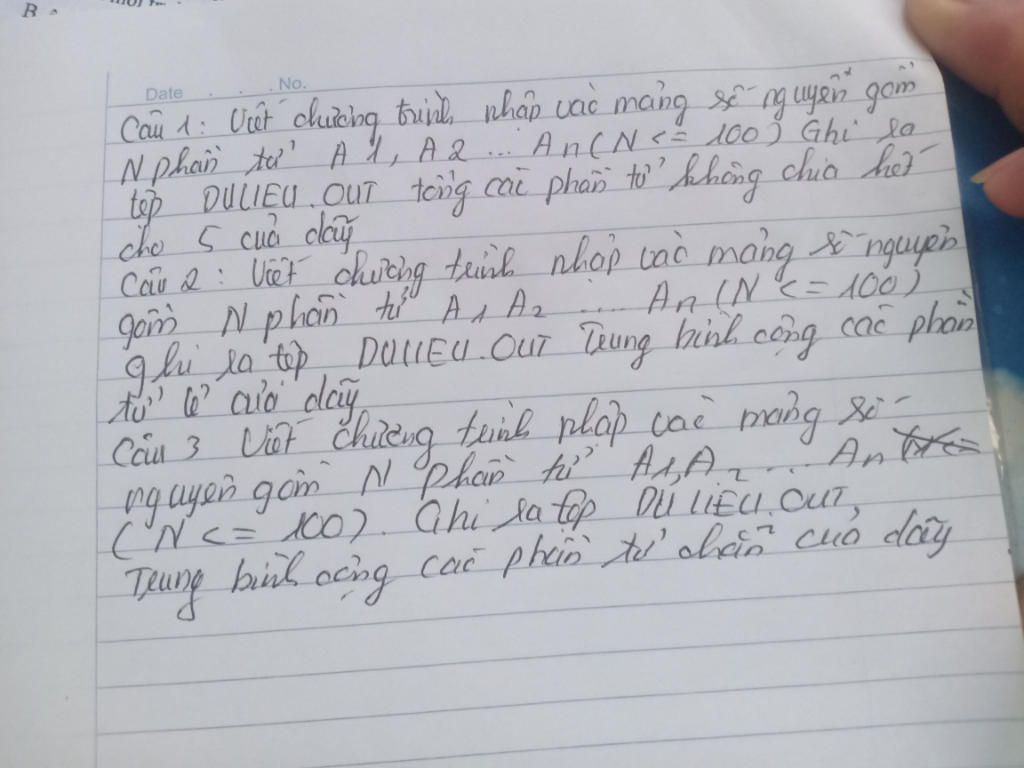 B.
Date . . . No.
Câu 1: Viết chương trình nhập vào mảng số nguyên gồm
N phần tử A1, A2 ... An (N <= 100) Ghi ra
tệp DULIEU.OUT tổng các phần tử không chia hết
cho 5 của dãy
Câu 2: Viết chương trình nhập vào mảng số nguyên
gồm N phần tử A1 A2 .... An (N <= 100)
ghi ra tệp DULIEU.OUT Trung bình cộng các phần
tử lẻ của dãy
Câu 3 Viết chương trình nhập vào mảng số
nguyên gồm N phần tử A1, A2 ... An
(N <= 100). Ghi ra tệp DULIEU.OUT,
Trung bình cộng các phần tử chẵn của dãy